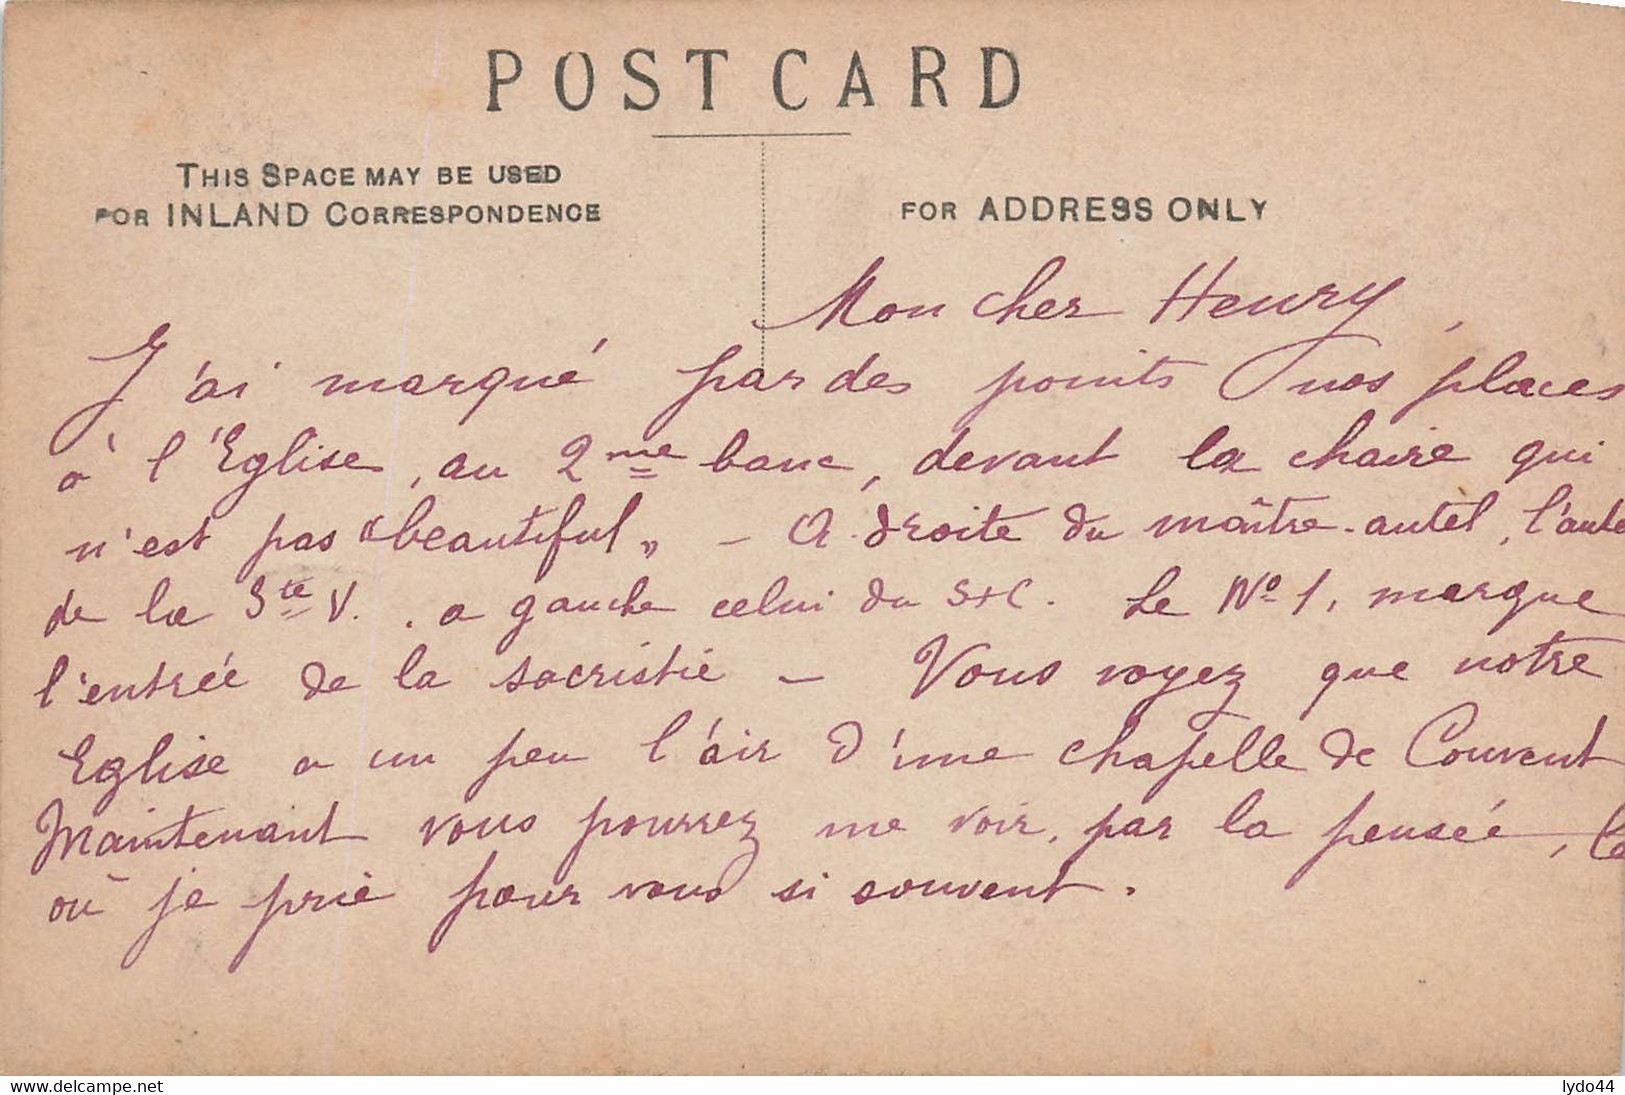 POST CARD
THIS SPACE MAY BE USED
FOR INLAND CORRESPONDENCE
FOR ADDRESS ONLY
Mon cher Henry,
J'ai marqué par des points nos places
à l'Eglise, au 2me banc, devant la chaire qui
n'est pas "beautiful" - A droite du maître-autel, l'aute
de la Ste V. . a gauche celui du S+C. Le No 1, marque
l'entrée de la sacristie - Vous voyez que notre
Eglise a un peu l'air d'une chapelle de Couvent
Maintenant vous pourrez me voir, par la pensée,
où je prie pour vous si souvent.
delcampe.net
lydo44